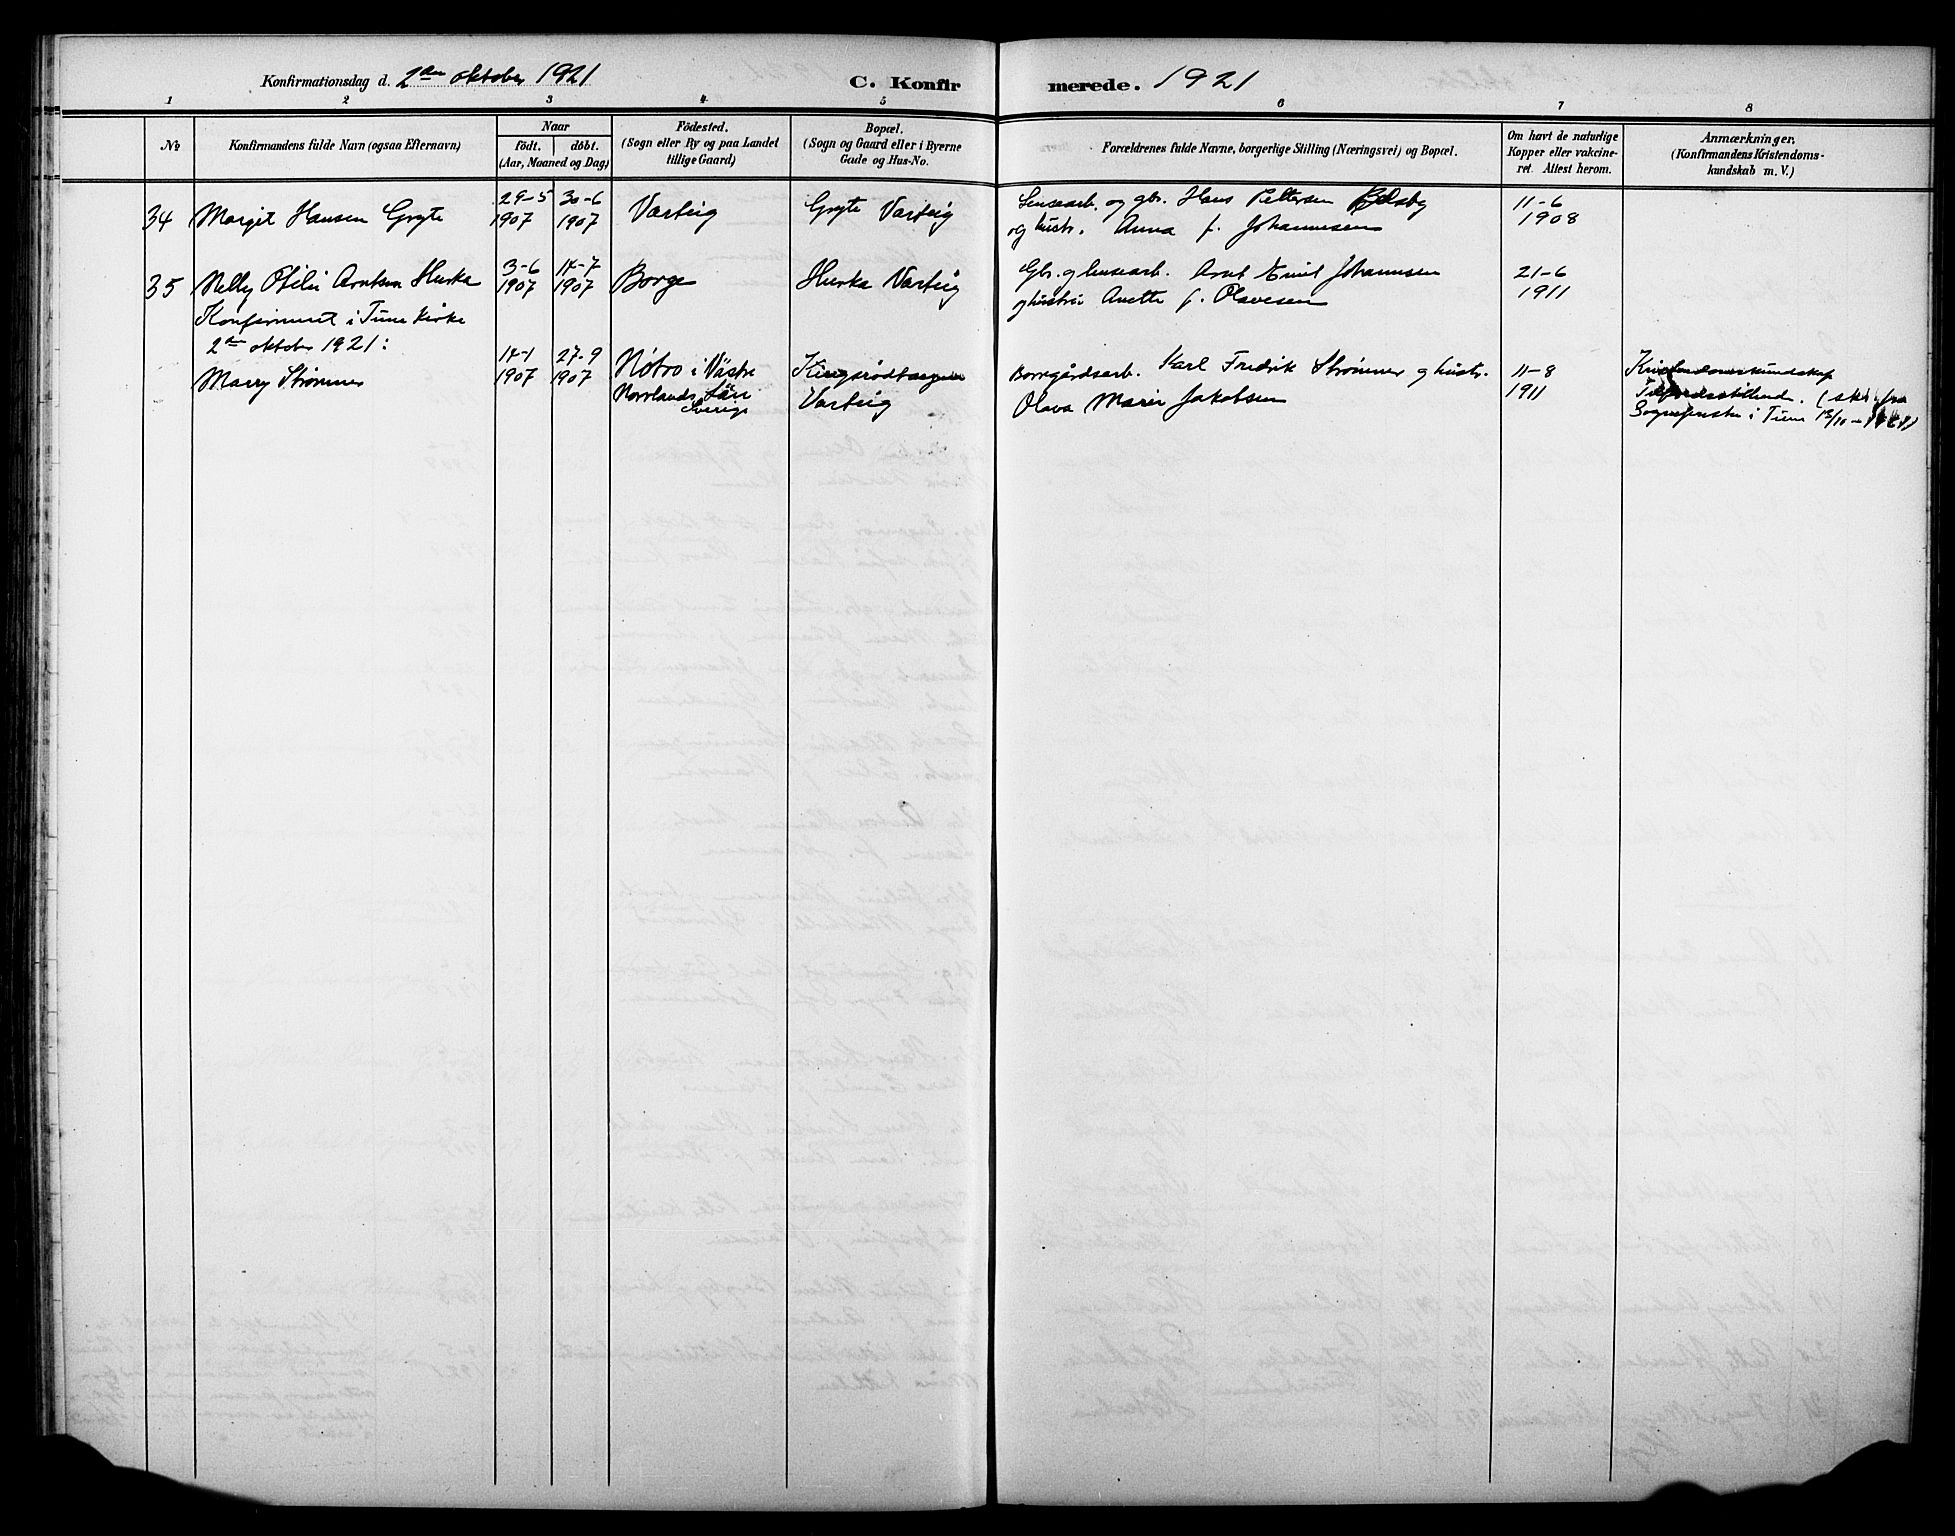 Konfirmationsdag d. 2den oktober 1921 C. Konfir merede. 1921
1 2 3 4 5 6 7 8
No
Konfirmandens fulde Navn (ogsaa Efternavn)
Naar
födt. döbt.
(Aar, Maaned og Dag)
Födested.
(Sogn eller By og paa Landet
tillige Gaard)
Bopæl.
(Sogn og Gaard eller i Byerne
Gade og Hus-No.
Forældrenes fulde Navne, borgerlige Stilling (Næringsvei) og Bopæl.
Om havt de naturlige
Kopper eller vakcine-
ret. Attest herom.
Anmærkninger.
(Konfirmandens Kristendoms-
kundskab m. V.)
34 Margit Hansen Gryte 29-5 1907 30-6 1907 Varteig Gryte Varteig
Lensearb. og gbr. Hans Pettersen
og hustr. Anna f. Johannesen
11-6
1908
35 Nelly Otilie Arntsen Hurka 3-6 1907 14-7 1907 Borge Hurka Varteig
Gbr. og lensearb. Arnt Emil Johannsen
og hustru Anette f. Olavesen
21-6
1911
Konfirmeret i Tune Kirke
2den oktober 1921:
Marry Strømner 14-1 1907 27-9 1907
Nötro i Västre
Norrlands Län
Sverige
Kingsrødtangen
Varteig
Borregårdsarb. Karl Fredrik Strømner og hustr.
Olava Marie Jakobsen
11-8
1911
Kristendomskundskap
Tilfredsstillende. (skr. fra
Sogneprester i Tune 13/10-1921)